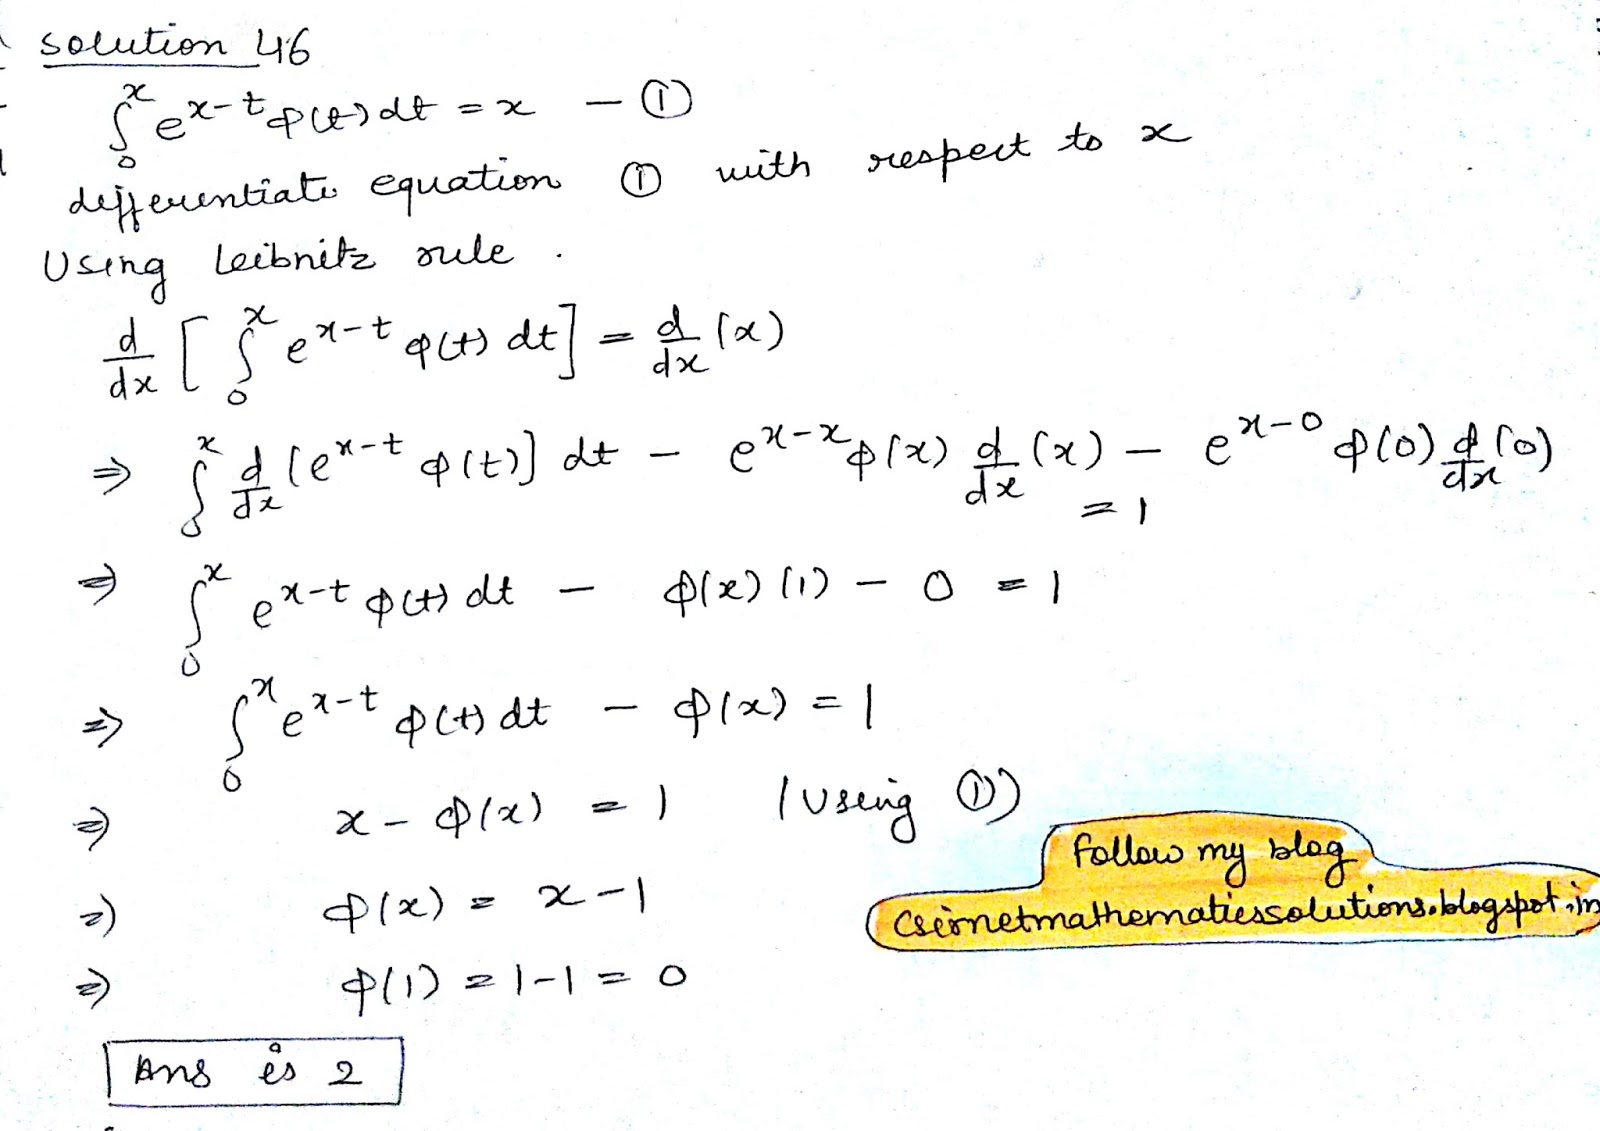 solution 46
∫₀ˣ e^(x-t) φ(t) dt = x — ①
differentiate equation ① with respect to x
Using Leibnitz rule .
d/dx [ ∫₀ˣ e^(x-t) φ(t) dt ] = d/dx (x)
⇒ ∫₀ˣ d/dx [e^(x-t) φ(t)] dt − e^(x-x) φ(x) d/dx (x) − e^(x-0) φ(0) d/dx (0)
= 1
⇒ ∫₀ˣ e^(x-t) φ(t) dt − φ(x) (1) − 0 = 1
⇒ ∫₀ˣ e^(x-t) φ(t) dt − φ(x) = 1
⇒ x − φ(x) = 1 (Using ①)
⇒ φ(x) = x − 1
⇒ φ(1) = 1 − 1 = 0
Ans is 2
follow my blog
csirnetmathematicssolutions.blogspot.in